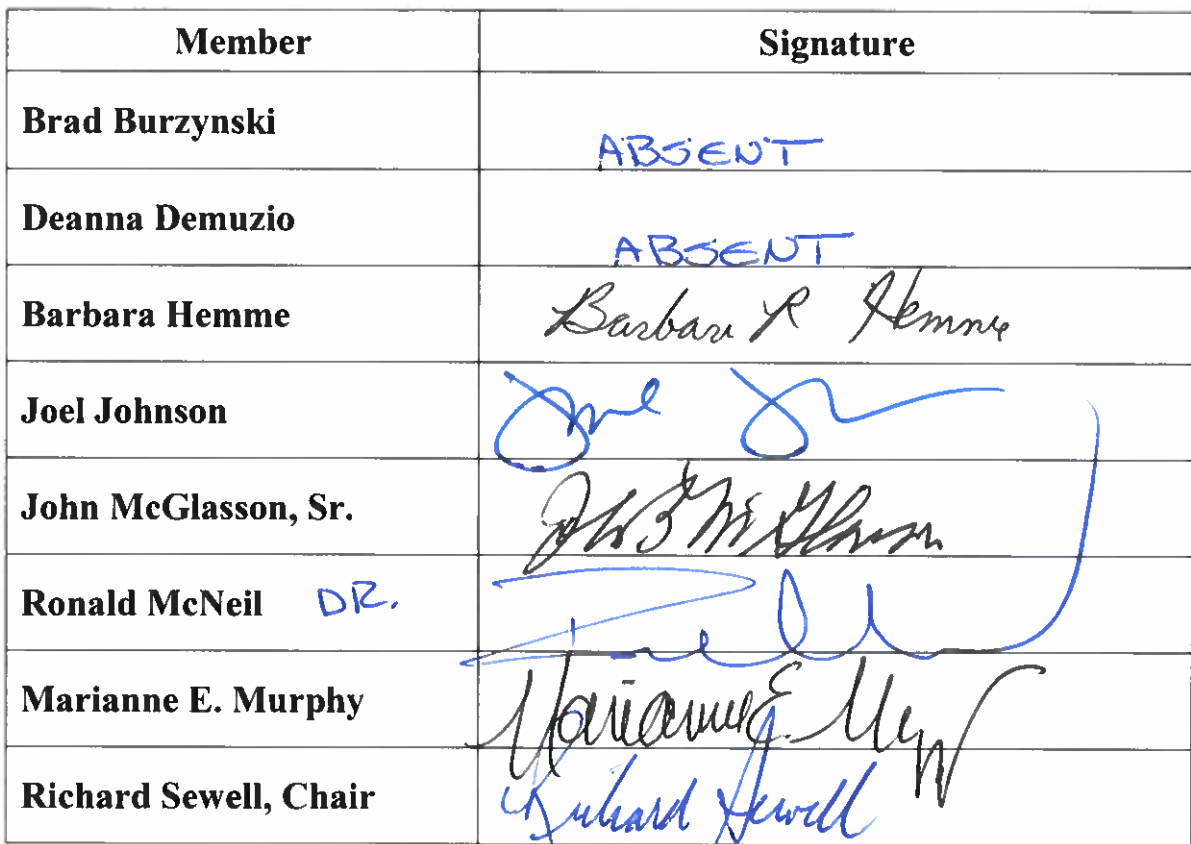 Member Signature
Brad Burzynski ABSENT
Deanna Demuzio ABSENT
Barbara Hemme Barbara R Hemme
Joel Johnson
John McGlasson, Sr. John B McGlasson
Ronald McNeil DR.
Marianne E. Murphy Marianne E.
Richard Sewell, Chair Richard Sewell